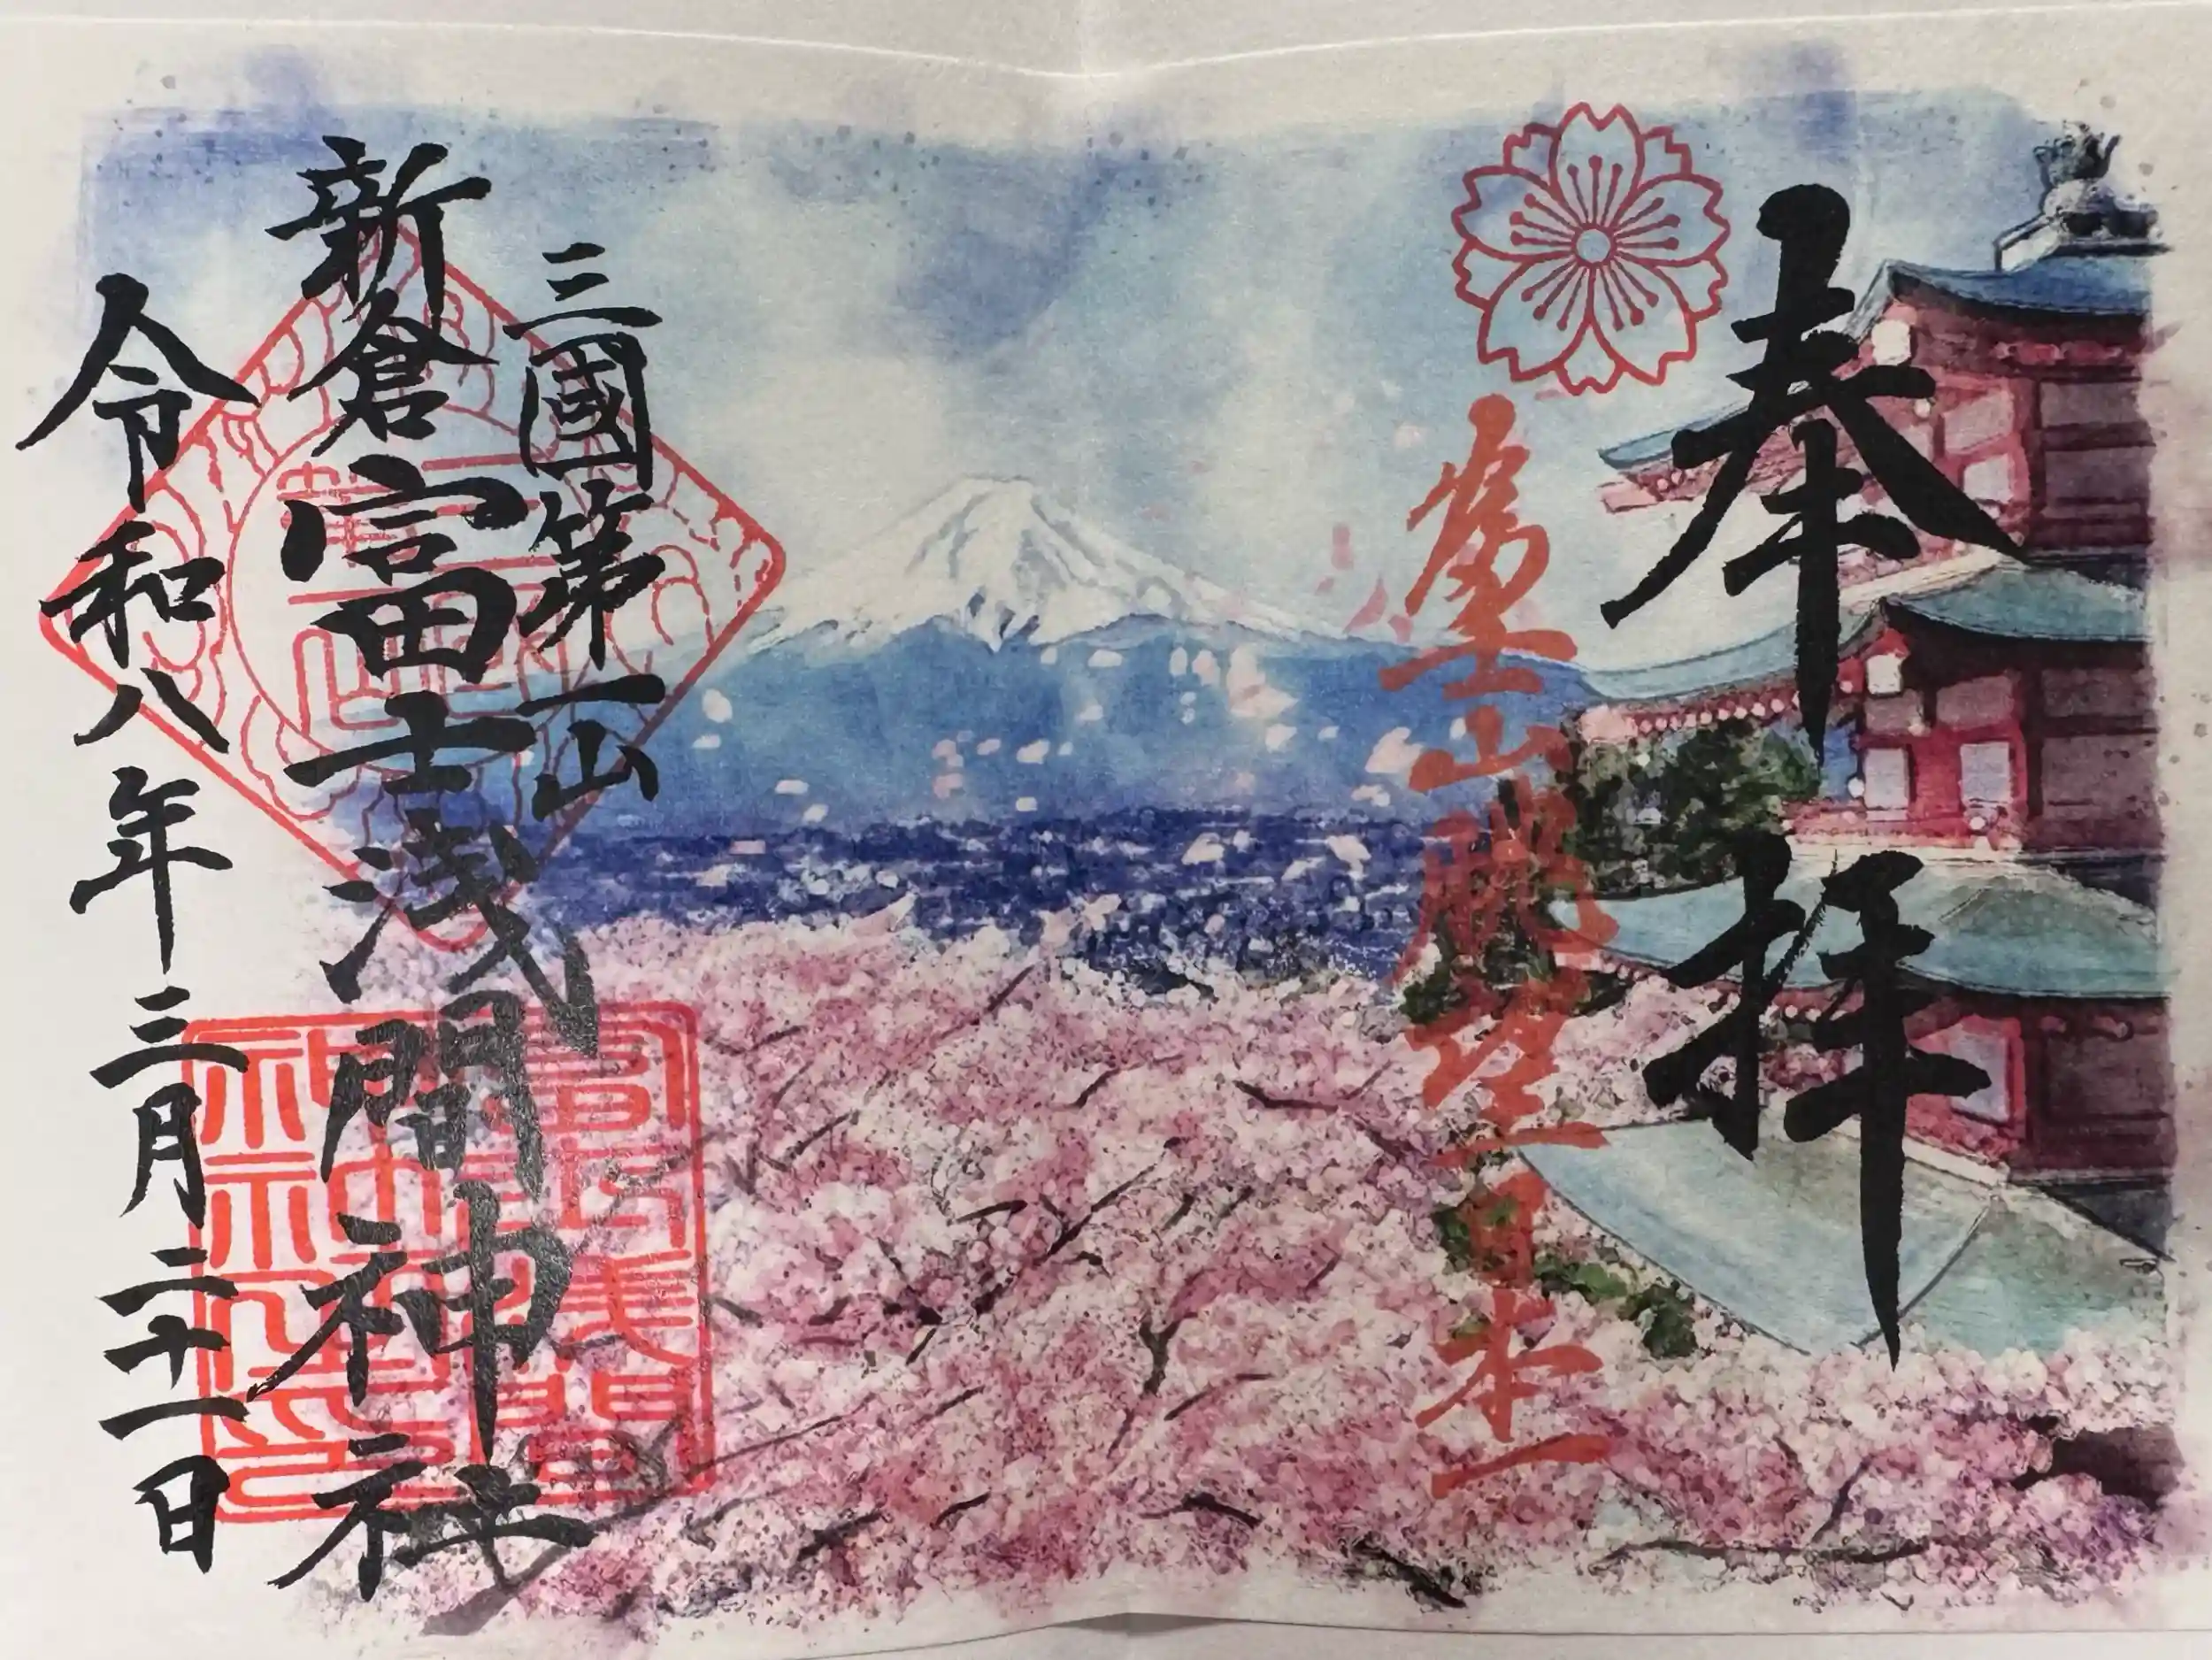 奉拝
山眺望日本一
三國第一山
新倉富士浅間神社
令和八年三月二十一日